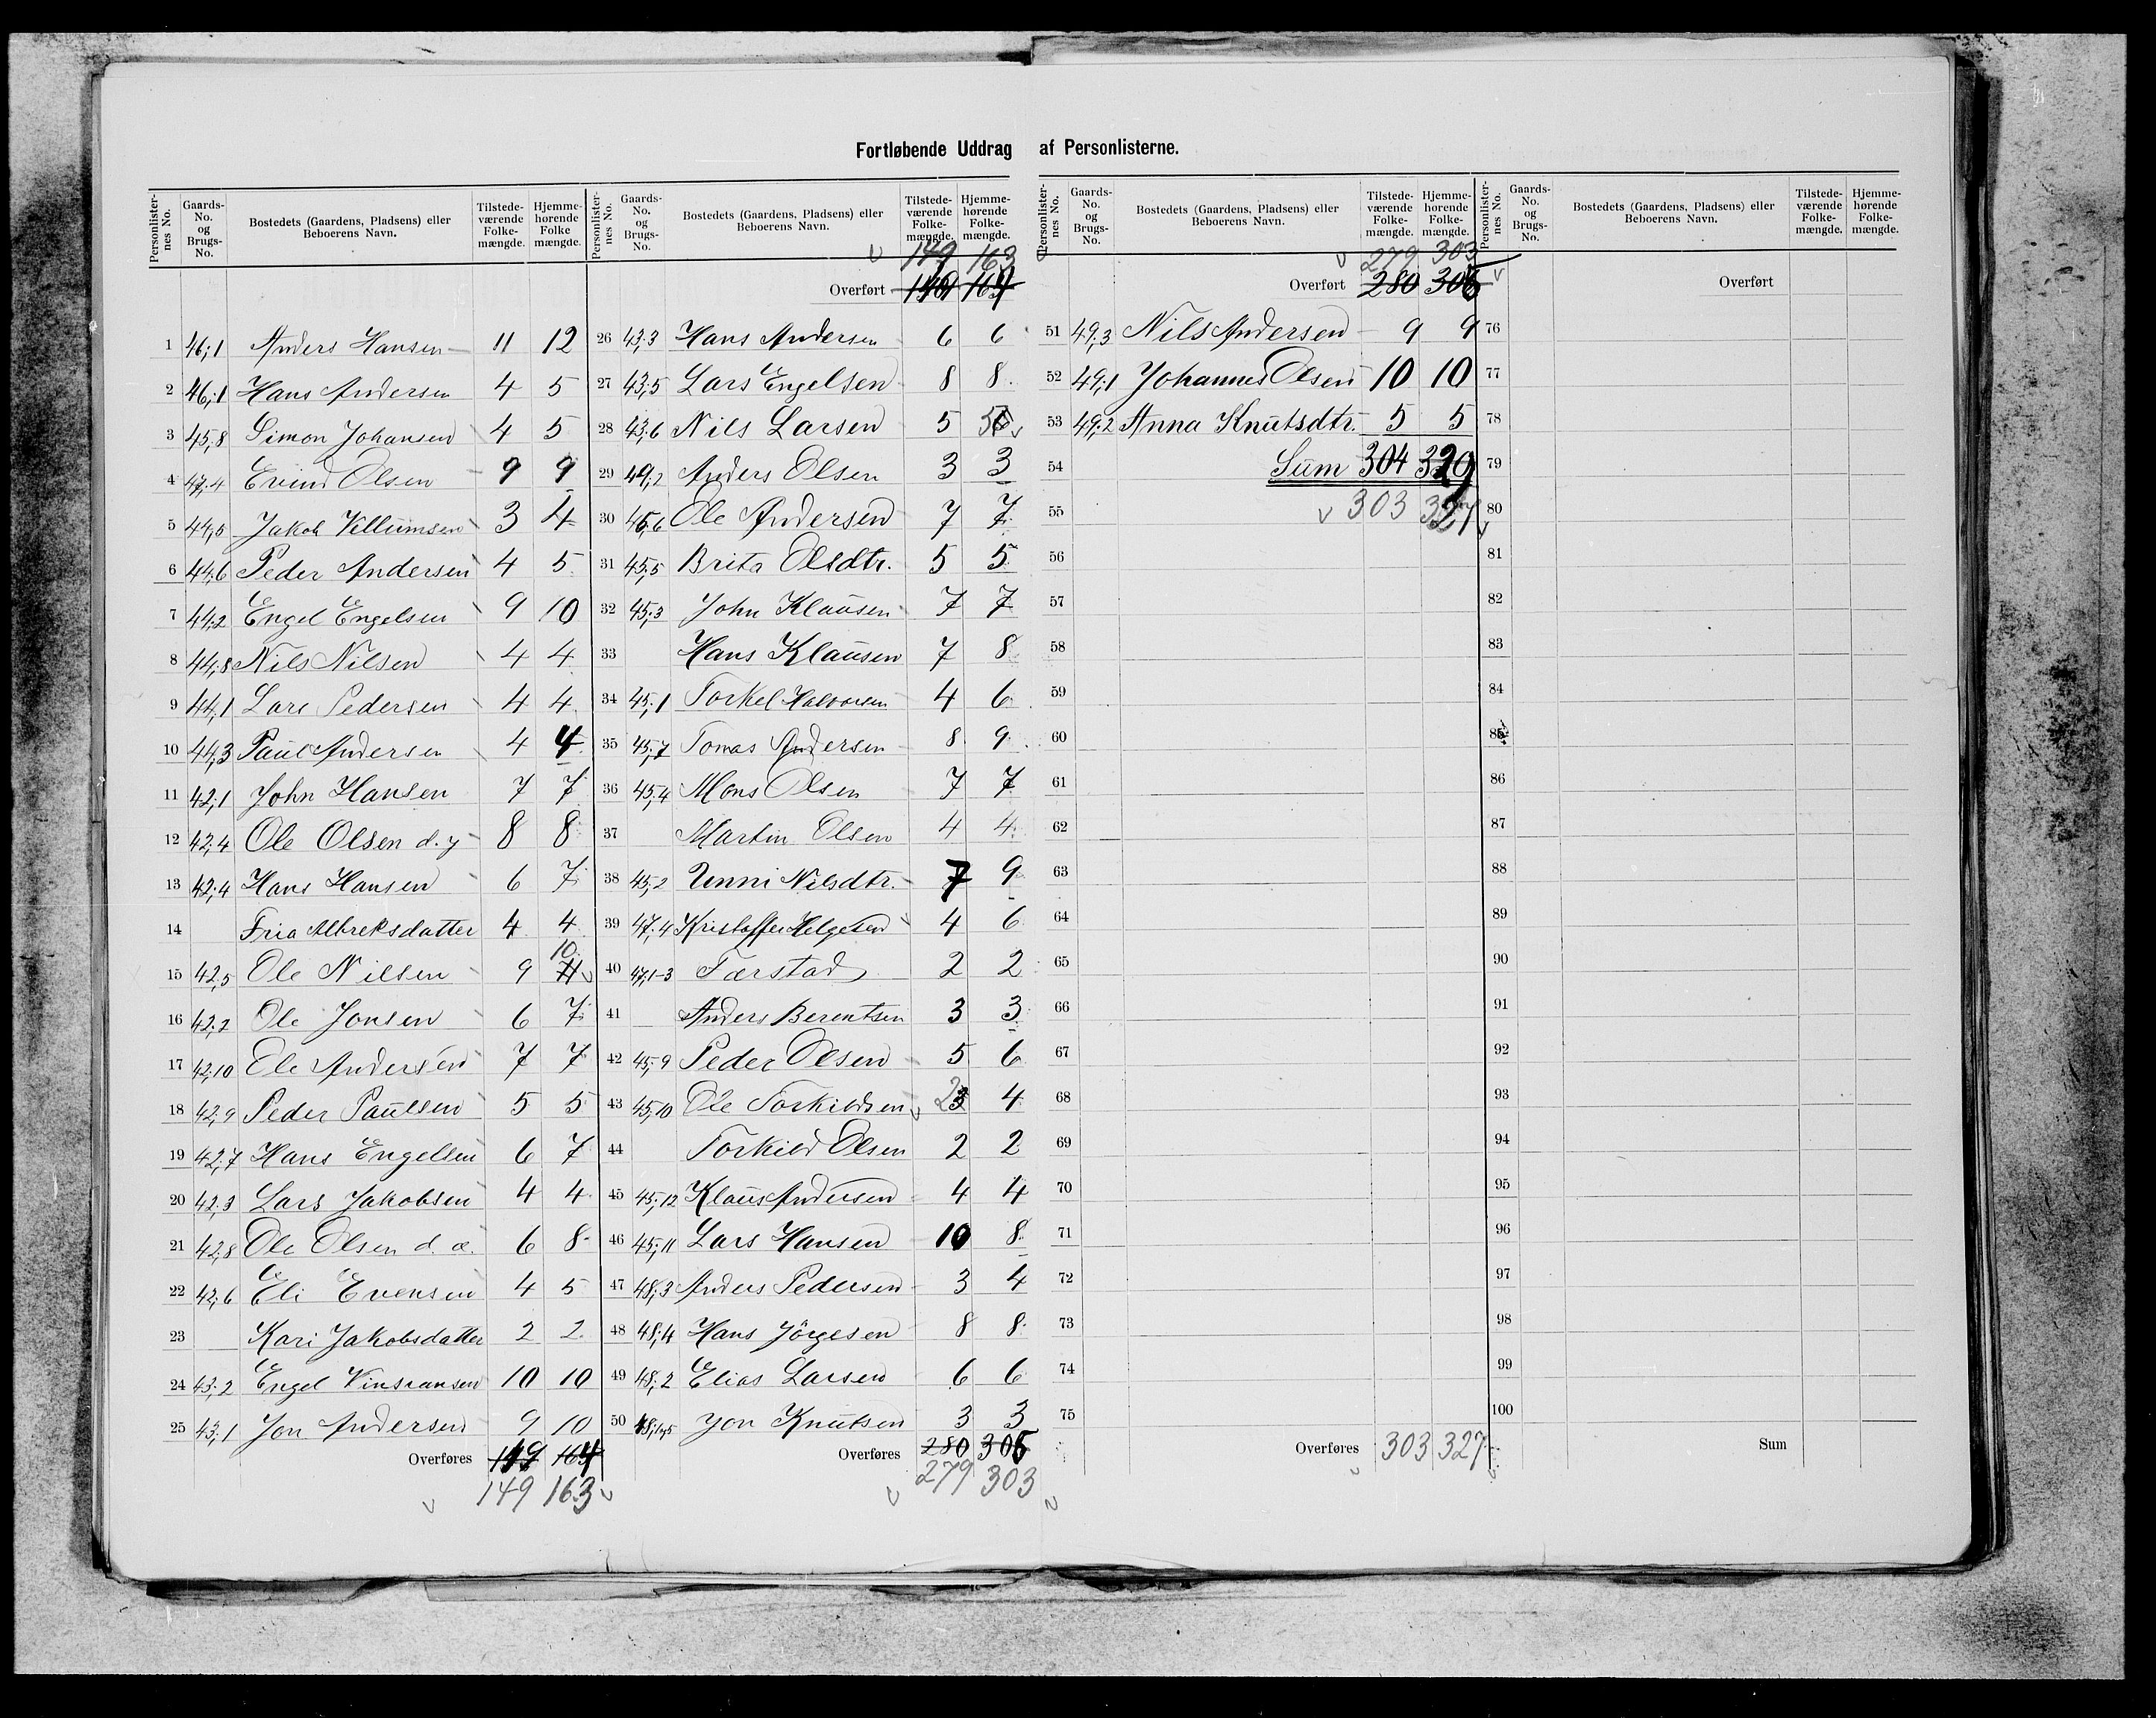 Fortløbende Uddrag af Personlisterne.
Personlisternes No. Gaards-No. og Brugs-No. Bostedets (Gaardens, Pladsens) eller Beboerens Navn. Tilstedeværende Folkemængde. Hjemmehørende Folkemængde.
1 46,1 Anders Hansen 11 12
2 46,1 Hans Andersen 4 5
3 45,8 Simon Johansen 4 5
4 47,4 Evind Olsen 9 9
5 44,5 Jakob Villumsen 3 4
6 44,6 Peder Andersen 4 5
7 44,2 Engel Engelsen 9 10
8 44,8 Nils Nilsen 4 4
9 44,1 Lars Pedersen 4 4
10 44,3 Paul Andersen 4 4
11 42,1 John Hansen 7 7
12 42,4 Ole Olsen d.y 8 8
13 42,4 Hans Hansen 6 7
14 Albreksdatter 4 4
15 42,5 Ole Nilsen 9 10
16 42,2 Ole Jonsen 6 7
17 42,10 Ole Andersen 7 7
18 42,9 Peder Paulsen 5 5
19 42,7 Hans Engelsen 6 7
20 42,3 Lars Jakobsen 4 4
21 42,8 Ole Olsen d. æ. 6 8
22 42,6 Eli Evensen 4 5
23 Kari Jakobsdatter 2 2
24 43,2 Engel 10 10
25 43,1 Jon Andersen 9 10
Overføres 164
149 163
Personlisternes No. Gaards-No. og Brugs-No. Bostedets (Gaardens, Pladsens) eller Beboerens Navn. Tilstedeværende Folkemængde. Hjemmehørende Folkemængde.
149 163
Overført 164
26 43,3 Hans Andersen 6 6
27 43,5 Lars Engelsen 8 8
28 43,6 Nils Larsen 5 5
29 49,2 Anders Olsen 3 3
30 45,6 Ole Andersen 7 7
31 45,5 Brita Olsdtr. 5 5
32 45,3 John Klausen 7 7
33 Hans Klausen 7 8
34 45,1 Torkel Halvorsen 4 6
35 45,7 Tomas Andersen 8 9
36 45,4 Mons Olsen 7 7
37 Martin Olsen 4 4
38 45,2 Unni Nilsdtr. 7 9
39 47,4 Kristoffer Helgesen 4 6
40 47,1-3 Tærstad 2 2
41 Anders Berentsen 3 3
42 45,9 Peder Olsen 5 6
43 45,10 Ole Torkildsen 2 3 4
44 Torkild Olsen 2 2
45 45,12 Klaus Andersen 4 4
46 45,11 Lars Hansen 10 8
47 48,3 Anders Pedersen 3 4
48 48,4 Hans Jörgesen 8 8
49 48,2 Elias Larsen 6 6
50 Jon Knutsen 3 3
Overføres 280 305
279 303
Personlisternes No. Gaards-No. og Brugs-No. Bostedets (Gaardens, Pladsens) eller Beboerens Navn. Tilstedeværende Folkemængde. Hjemmehørende Folkemængde.
279 303
Overført 280 305
51 49,3 Nils Andersen 9 9
52 49,1 Johannes Olsen 10 10
53 49,2 Anna Knutsdtr. 5 5
54 Sum 304 329
55 303 327
56
57
58
59
60
61
62
63
64
65
66
67
68
69
70
71
72
73
74
75
Overføres 303 327
Personlisternes No. Gaards-No. og Brugs-No. Bostedets (Gaardens, Pladsens) eller Beboerens Navn. Tilstedeværende Folkemængde. Hjemmehørende Folkemængde.
Overført
76
77
78
79
80
81
82
83
84
85
86
87
88
89
90
91
92
93
94
95
96
97
98
99
100
Sum